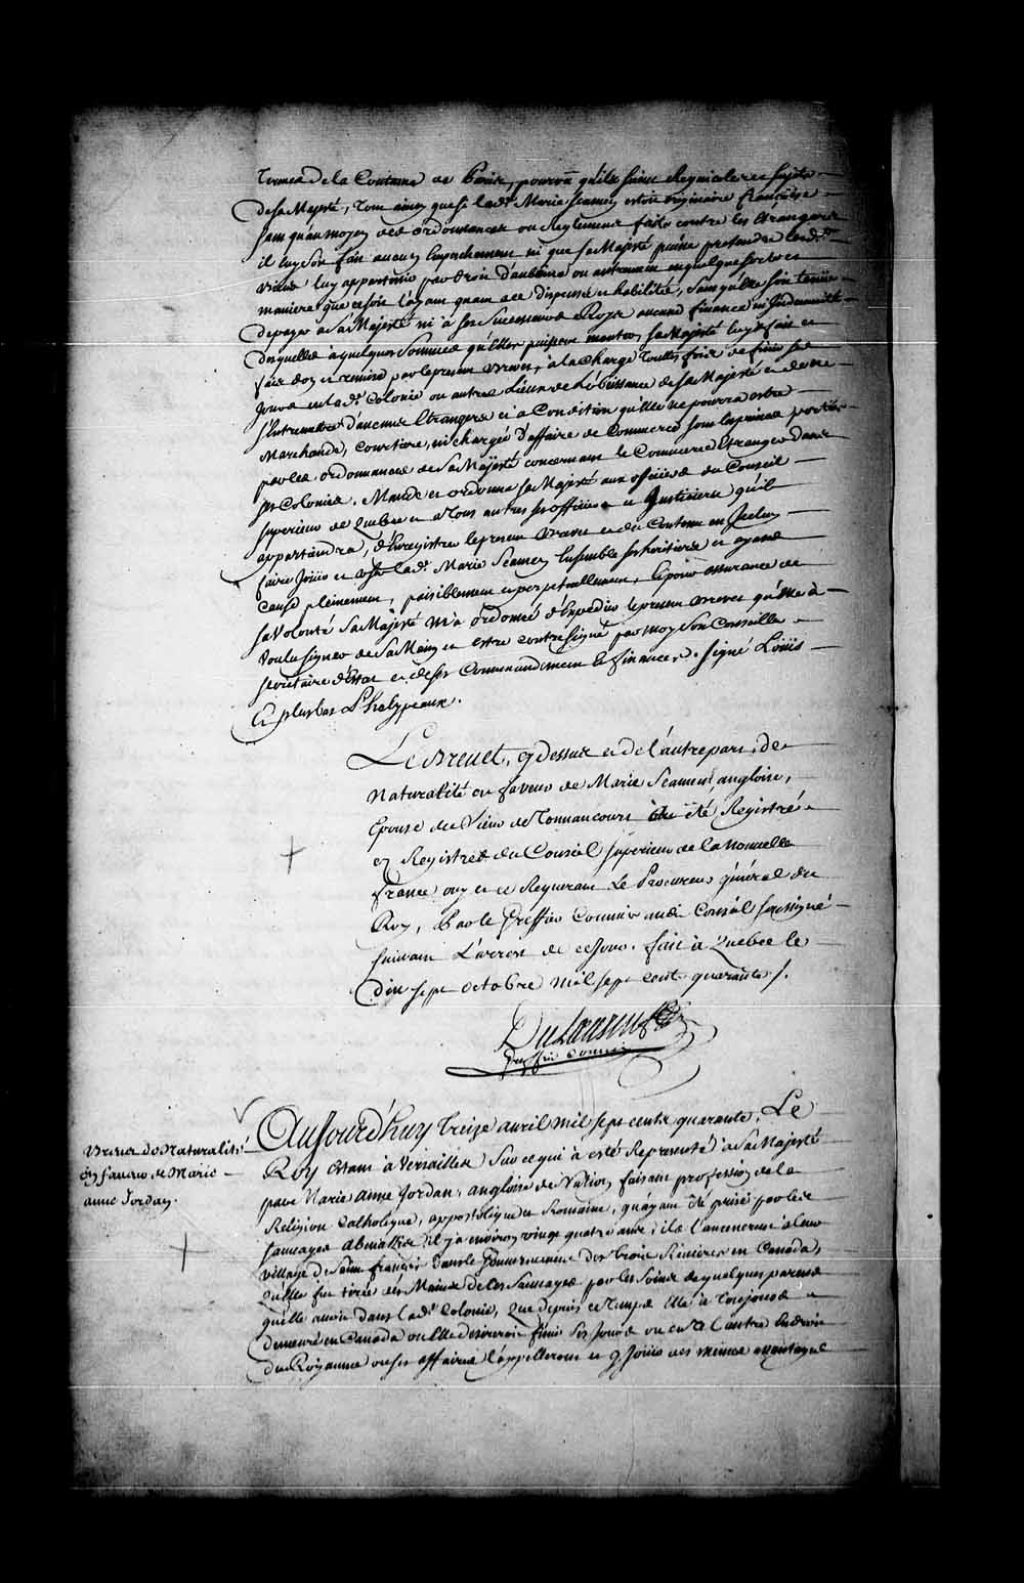 termes de la Coutume de Paris, pourvû qu'ils soient Regnicoles et sujets
de sa Majesté, tout ainsy que si lad.e Marie Seamen estoit originaire françoise
sans qu'au moyen des ordonnances ou Reglemens faits contre les Etrangers
il luy soit fait aucun Empechement ni que sa Majesté puisse pretendre lesd.
biens luy appartenir par droit d'aubaine ou autrement en quelque sorte et
maniere que ce soit l'ayant quant a ce dispensé et habilitée, sans qu'elle soit tenüe
de payer a Sa Majesté ni à ses Successeurs Roys aucune finance ni Indemnité
desquelles à quelques Sommes qu'elles puissent monter sa Majesté luy a fait et
fait don et remise par le present brevet, à la charge toutes fois de finir ses
jours en lad.e Colonie ou autres Lieux de l'obeïssance de sa Majesté et de ne
s'entremettre d'aucuns Etrangers et a Condition qu'elle ne pourra estre
Marchande, courtiere, ni chargée d'affaire de Commerce sous les peines portées
par les ordonnances de Sa Majesté concernant le Commerce Etranger dans
ses Colonies. Mande et ordonne sa Majesté aux officiers du Conseil
superieur de Quebec et a tous autres ses officiers et Justiciers qu'il
appartiendra, d'Enregistrer le present brevet et du Contenu en Icelui
faire Joüir et user lad.e Marie Seamen Ensemble ses heritiers et ayans
cause pleinement, paisiblement et perpetuellement, Et pour assurance de
sa Volonté Sa Majesté m'a ordonné d'Expedier le present brevet qu'elle a
voulu signer de Sa Main et estre contresigné par moy Son Conseiller
secretaire d'Estat et de ses Commandemens et finances. Signé Loüis
Et plus bas Phelypeaux.
Le Brevet, cy dessus et de l'autre part, de
Naturalité en faveur de Marie Seamen, angloise,
Epouse du Sieur de Tonnancourt a été Registré
es Registres du Conseil superieur de la Nouvelle
france ouy et ce Requerant Le Procureur général du
Roy, Par le Greffier Commis audit Conseil soussigné
suivant L'arrest de ce Jour. fait à Quebec le
dix sept octobre mil sept cent quarante /.
Du Laurent
Greffier Commis
Brevet de Naturalité
en faveur de Marie
anne Jordan.
Aujourd'huy Treize avril mil sept cents quarante. Le
Roy Estant à Versailles Sur ce qui a esté Representé à Sa Majesté
par Marie Anne Jordan, angloise de Nation, faisant profession de la
Religion Catholique, appostolique et Romaine, qu'ayant été prise par les
sauvages abenakis il y a environ vingt quatre ans, ils l'amenerent a leur
village de Saint françois dans le Gouvernement des trois Rivieres en Canada,
qu'elle fut tirée des Mains de ces Sauvages par les Soins de quelques parens
qu'elle avoit dans lad.e Colonie, que depuis ce temps Elle a toujours
demeuré en Canada ou elle desireroit finir ses Jours ou en tel autre Endroit
du Royaume ou ses affaires l'appelleront et y Joüir des mêmes avantages